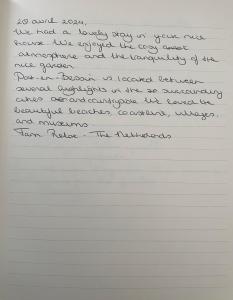 20 avril 2024.
We had a lovely stay in your nice
house. We enjoyed the cosy
atmosphere and the tranquility of the
nice garden.
Port-en-Bessin is located between
several highlights in the surrounding
cities and countryside. We loved the
beautiful beaches, coastline, villages,
and museums.
Fam - The Netherlands